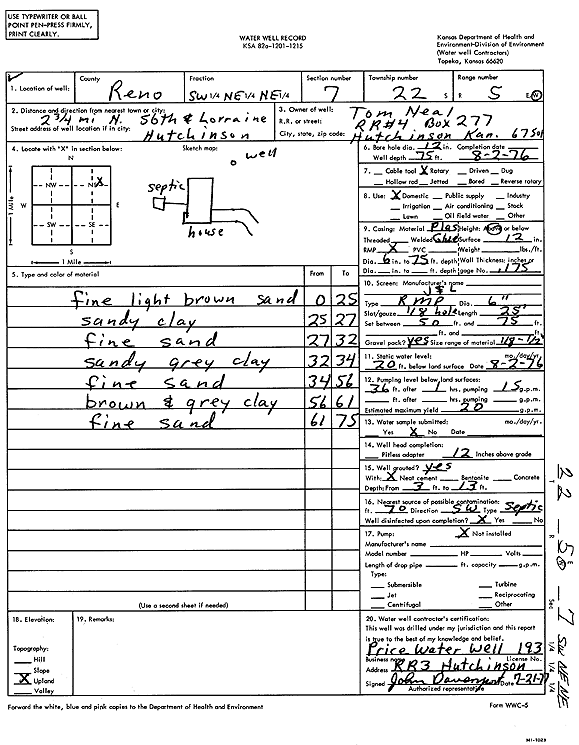 USE TYPEWRITER OR BALL
POINT PEN-PRESS FIRMLY,
PRINT CLEARLY.
WATER WELL RECORD
KSA 82a-1201-1215
Kansas Department of Health and
Environment-Division of Environment
(Water well Contractors)
Topeka, Kansas 66620
1. Location of well:
County
Reno
Fraction
SW 1/4 NE 1/4 NE 1/4
Section number
7
Township number
22 S
Range number
R 5 E/W
2. Distance and direction from nearest town or city:
2 3/4 mi N. 56th & Lorraine
Street address of well location if in city:
Hutchinson
3. Owner of well: Tom Neal
R.R. or street: RR#4 Box 277
City, state, zip code: Hutchinson Kan. 67501
4. Locate with "X" in section below:
N
NW NE X
W E
SW SE
S
1 Mile
1 Mile
Sketch map:
well
septic
house
6. Bore hole dia. 12 in. Completion date
Well depth 75 ft. 8-2-76
7. Cable tool X Rotary Driven Dug
Hollow rod Jetted Bored Reverse rotary
8. Use: X Domestic Public supply Industry
Irrigation Air conditioning Stock
Lawn Oil field water Other
9. Casing: Material Plas Height: Above or below
Threaded Welded Glue Surface 12 in.
RMP X PVC Weight lbs./ft.
Dia. 6 in. to 75 ft. depth Wall Thickness: inches or
Dia. in. to ft. depth gage No. .175
5. Type and color of material From To
fine light brown sand 0 25
sandy clay 25 27
fine sand 27 32
sandy grey clay 32 34
fine sand 34 56
brown & grey clay 56 61
fine sand 61 75
(Use a second sheet if needed)
10. Screen: Manufacturer's name
Type RMP Dia. 6"
Slot/gauze 1/8 hole Length 25'
Set between 50 ft. and 75 ft.
ft. and ft.
Gravel pack? yes Size range of material 1/8-1/2
11. Static water level: mo./day/yr.
20 ft. below land surface Date 8-2-76
12. Pumping level below land surfaces:
36 ft. after 1 hrs. pumping 15 g.p.m.
ft. after hrs. pumping g.p.m.
Estimated maximum yield 20 g.p.m.
13. Water sample submitted: mo./day/yr.
Yes X No Date
14. Well head completion:
Pitless adapter 12 Inches above grade
15. Well grouted? yes
With: X Neat cement Bentonite Concrete
Depth: From 3 ft. to 13 ft.
16. Nearest source of possible contamination:
ft. 70 Direction SW Type Septic
Well disinfected upon completion? X Yes No
17. Pump: X Not installed
Manufacturer's name
Model number HP Volts
Length of drop pipe ft. capacity g.p.m.
Type:
Submersible Turbine
Jet Reciprocating
Centrifugal Other
18. Elevation:
Topography:
Hill
Slope
X Upland
Valley
19. Remarks:
20. Water well contractor's certification:
This well was drilled under my jurisdiction and this report
is true to the best of my knowledge and belief.
Price Water Well 193
Business name License No.
Address RR3 Hutchinson
Signed John Davenport Date 7-21-77
Authorized representative
Forward the white, blue and pink copies to the Department of Health and Environment
Form WWC-5
T 22 R 5 E W Sec 7 1/4 SW 1/4 NE 1/4 NE